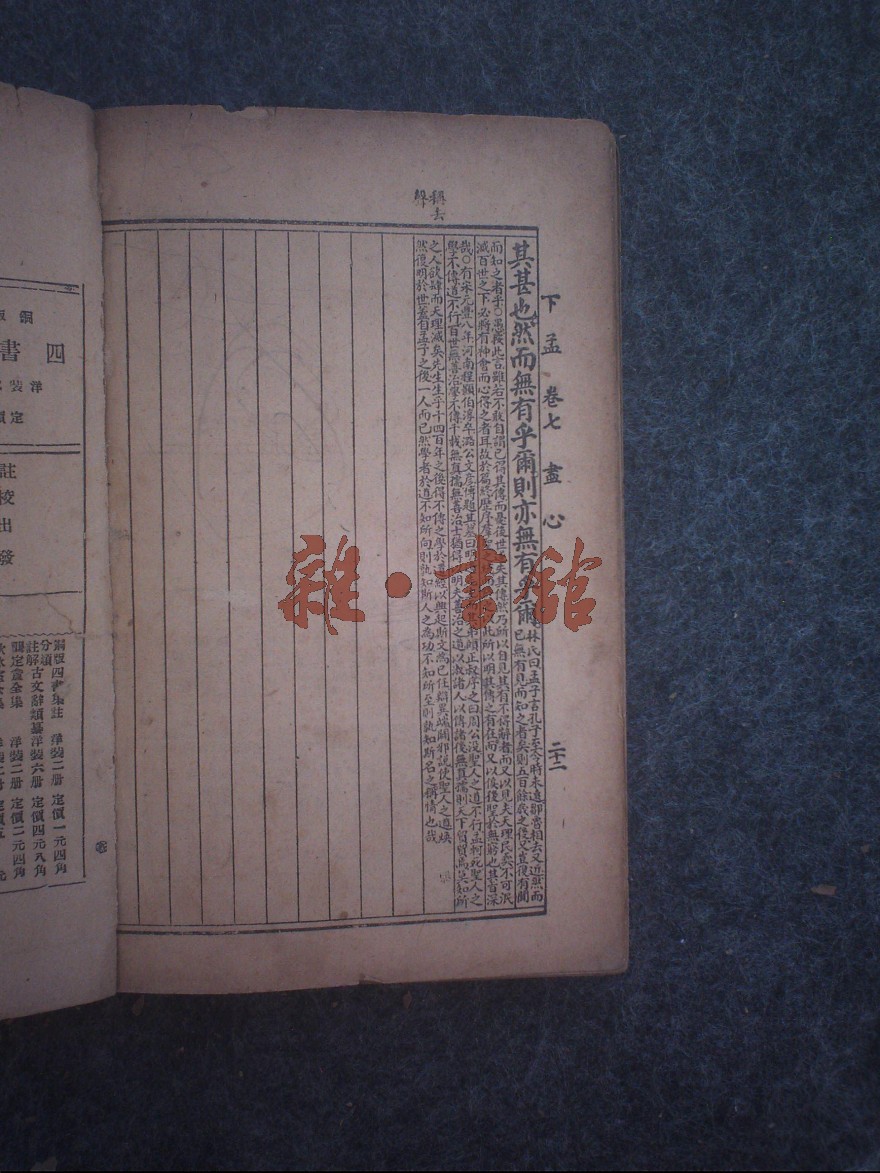 下孟 卷七 盡心 二十二
稱去
聲
其甚也然而無有乎爾則亦無有乎爾
林氏曰孟子言孔子至今時未遠鄒魯相去又近然而
已無有見而知之者矣則五百餘歲之後又豈復有聞
而知之者乎○愚按此言雖若不敢自謂已得其傳而憂後世
所以自見其有不得辭者而又以見夫天理民彝不可泯
滅百世之下必將有神會而心得之者耳故於篇終歷序羣聖之
此所以明其傳之有在而又以俟後聖於無窮也其旨深
哉○有宋元豐八年河南程顥伯淳卒潞公文彥博題其墓曰明
弟頤正叔序之曰周公沒聖人之道不行孟軻死聖人之
學不傳道不行百世無善治學不傳千載無真儒無善治士猶得
明夫善治之道以淑諸人以傳諸後無真儒則天下貿貿焉莫知所
之人欲肆而天理滅矣先生生乎千四百年之後得不傳之學於遺經以興起斯文為己任辨異端闢邪說使聖人之道煥
然復明於世蓋自孟子之後一人而已然學者於道不知所向則孰知斯人之為功不知所至則孰知斯名之稱情也哉
雜·書館
銅版
四書
洋裝
定價
註
校
出
發
銅版四書集註 洋裝二册 定價一元四角
分類
註解古文辭類纂 洋裝六册 定價四元八角
龔定盦全集 洋裝二册 定價二元四角